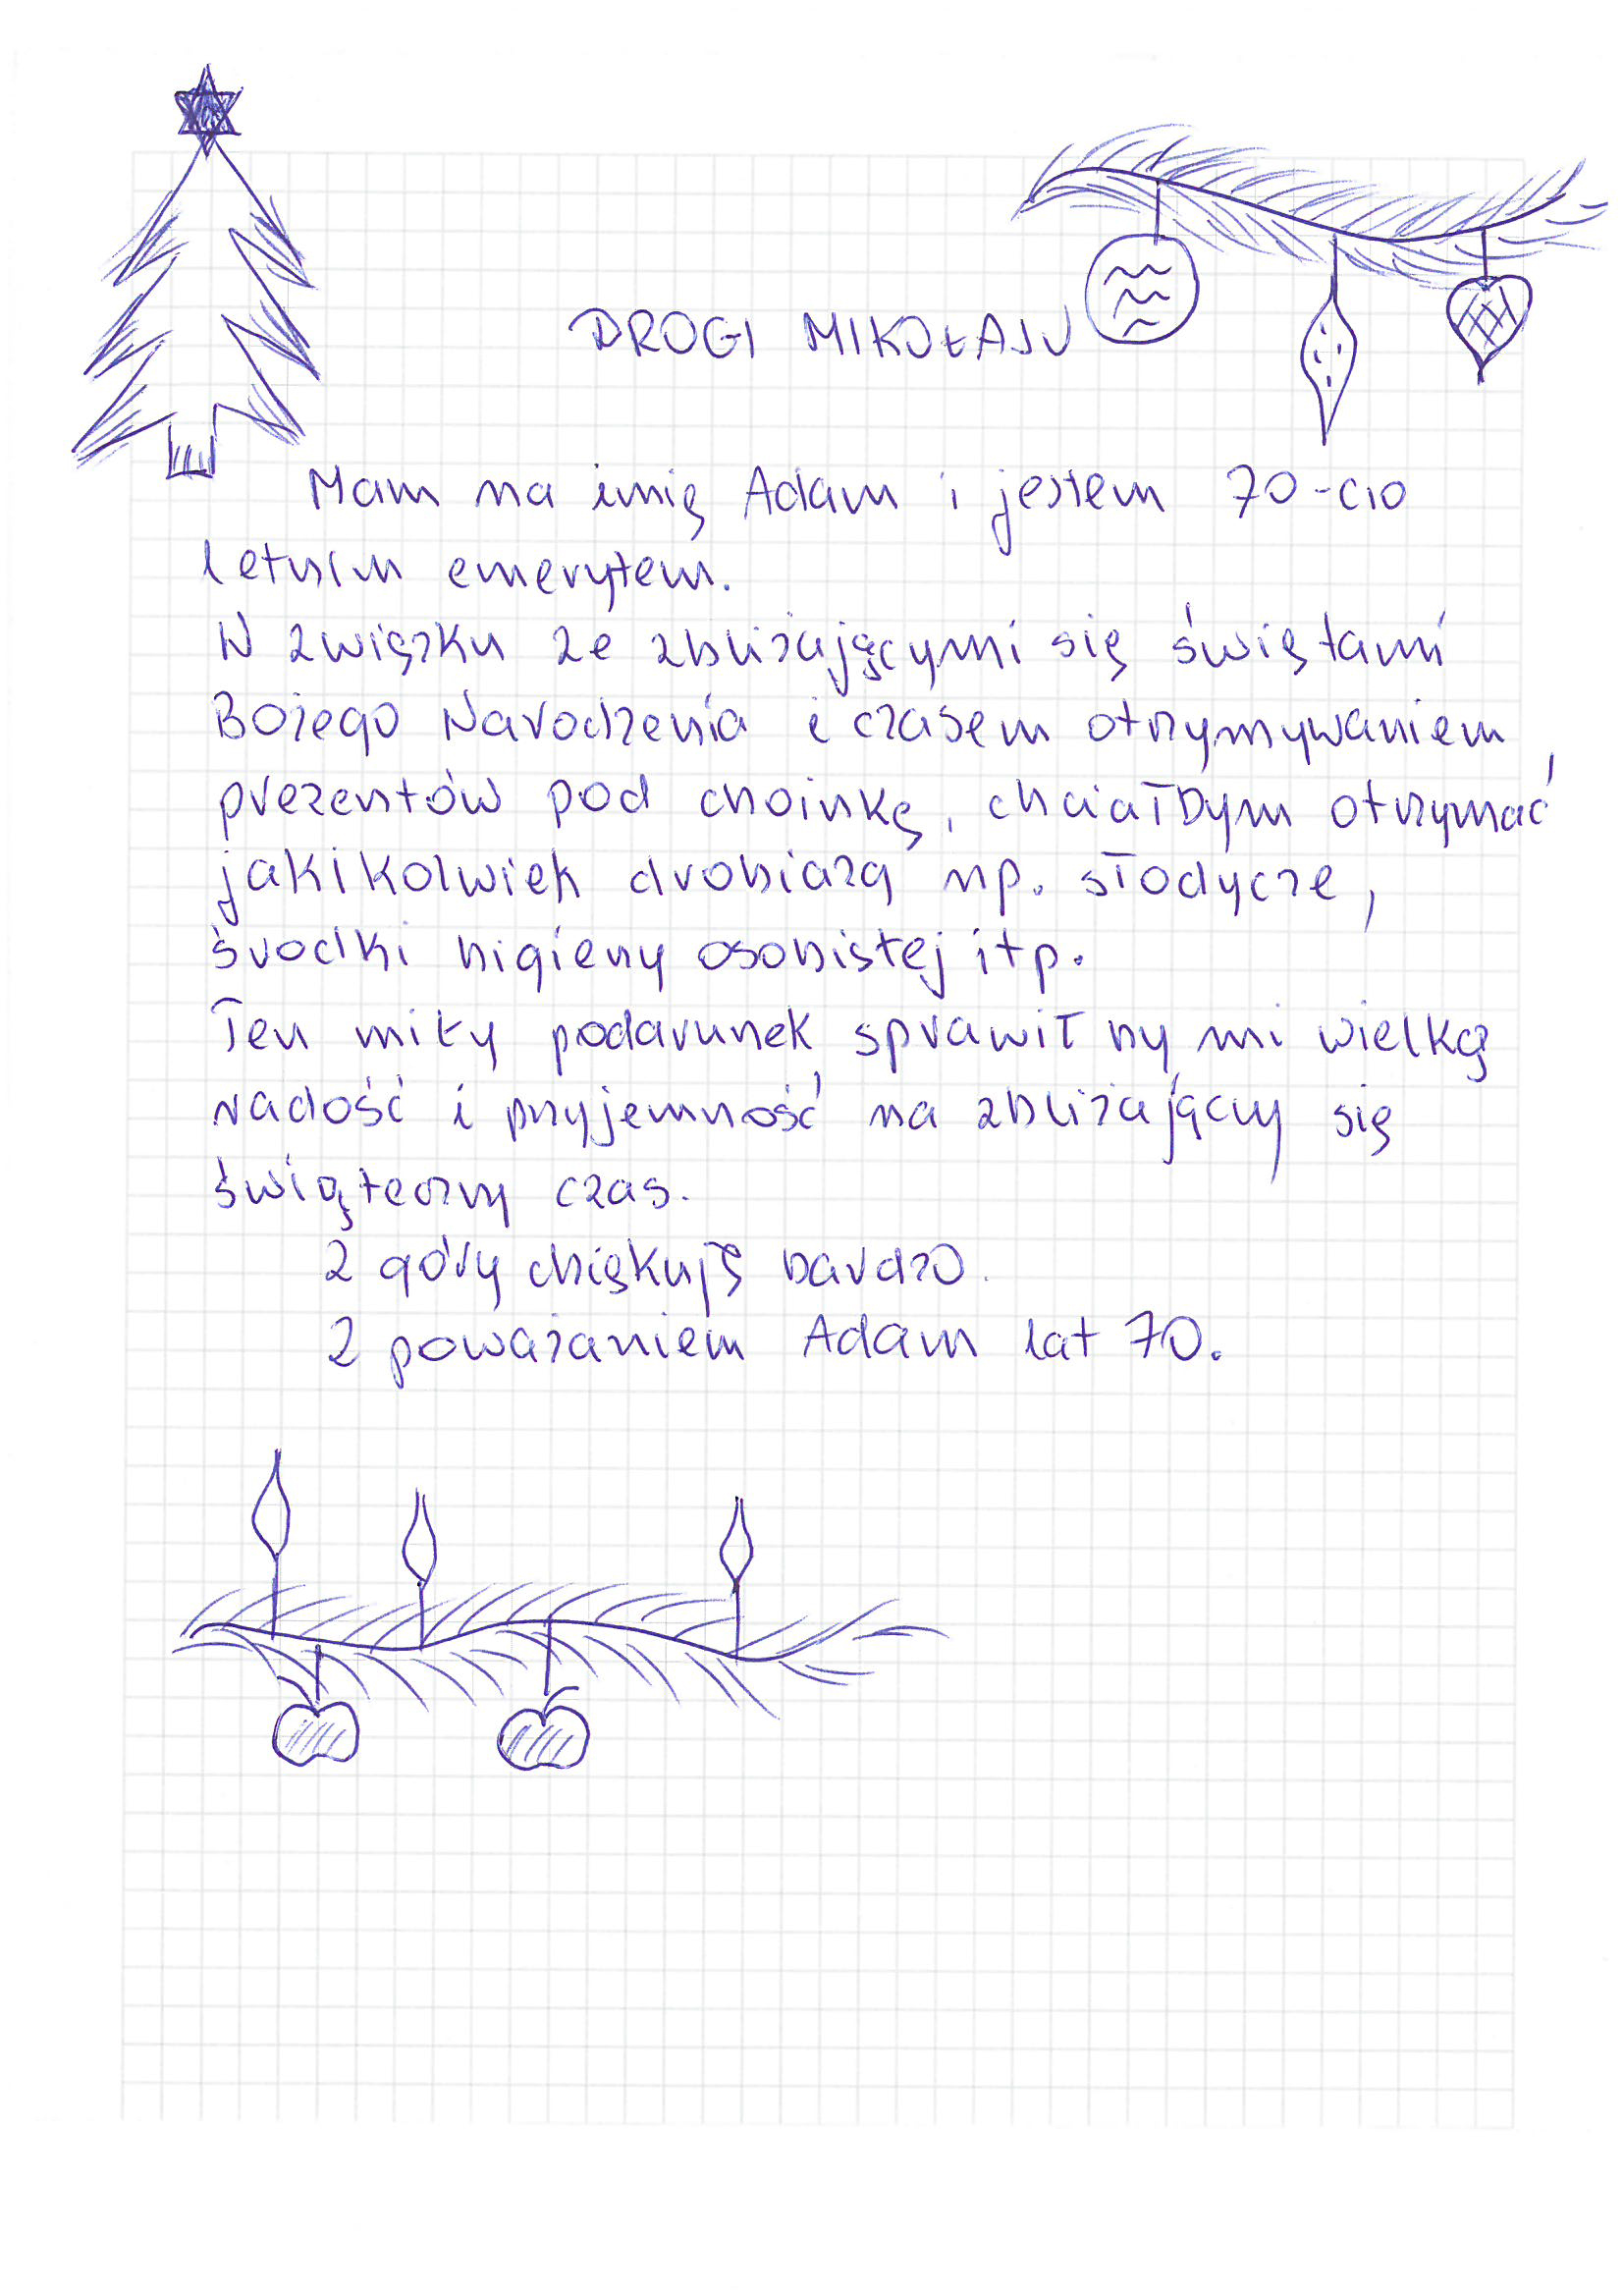 DROGI MIKOŁAJU
Mam na imię Adam i jestem 70-cio
letnim emerytem.
W związku ze zbliżającymi się świętami
Bożego Narodzenia i czasem otrzymywaniem
prezentów pod choinkę, chciałbym otrzymać
jakikolwiek drobiazg np. słodycze,
środki higieny osobistej itp.
Ten miły podarunek sprawił by mi wielką
radość i przyjemność na zbliżający się
świąteczny czas.
Z góry dziękuję bardzo.
Z poważaniem Adam lat 70.